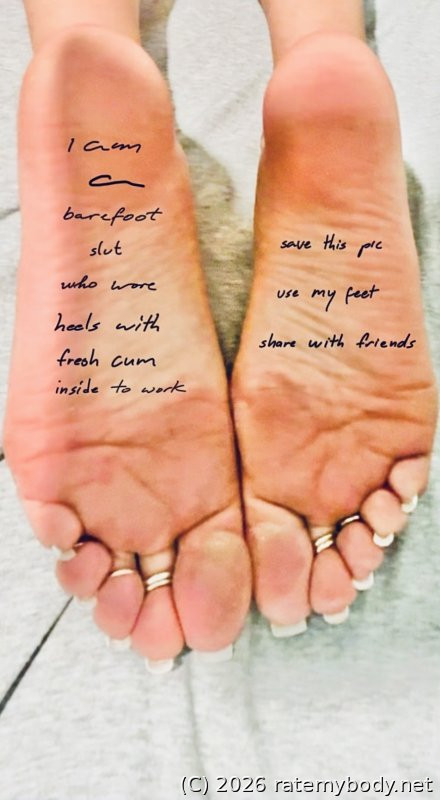 I am
a
barefoot
slut
who wore
heels with
fresh cum
inside to work
save this pic
use my feet
share with friends
(C) 2026 ratemybody.net